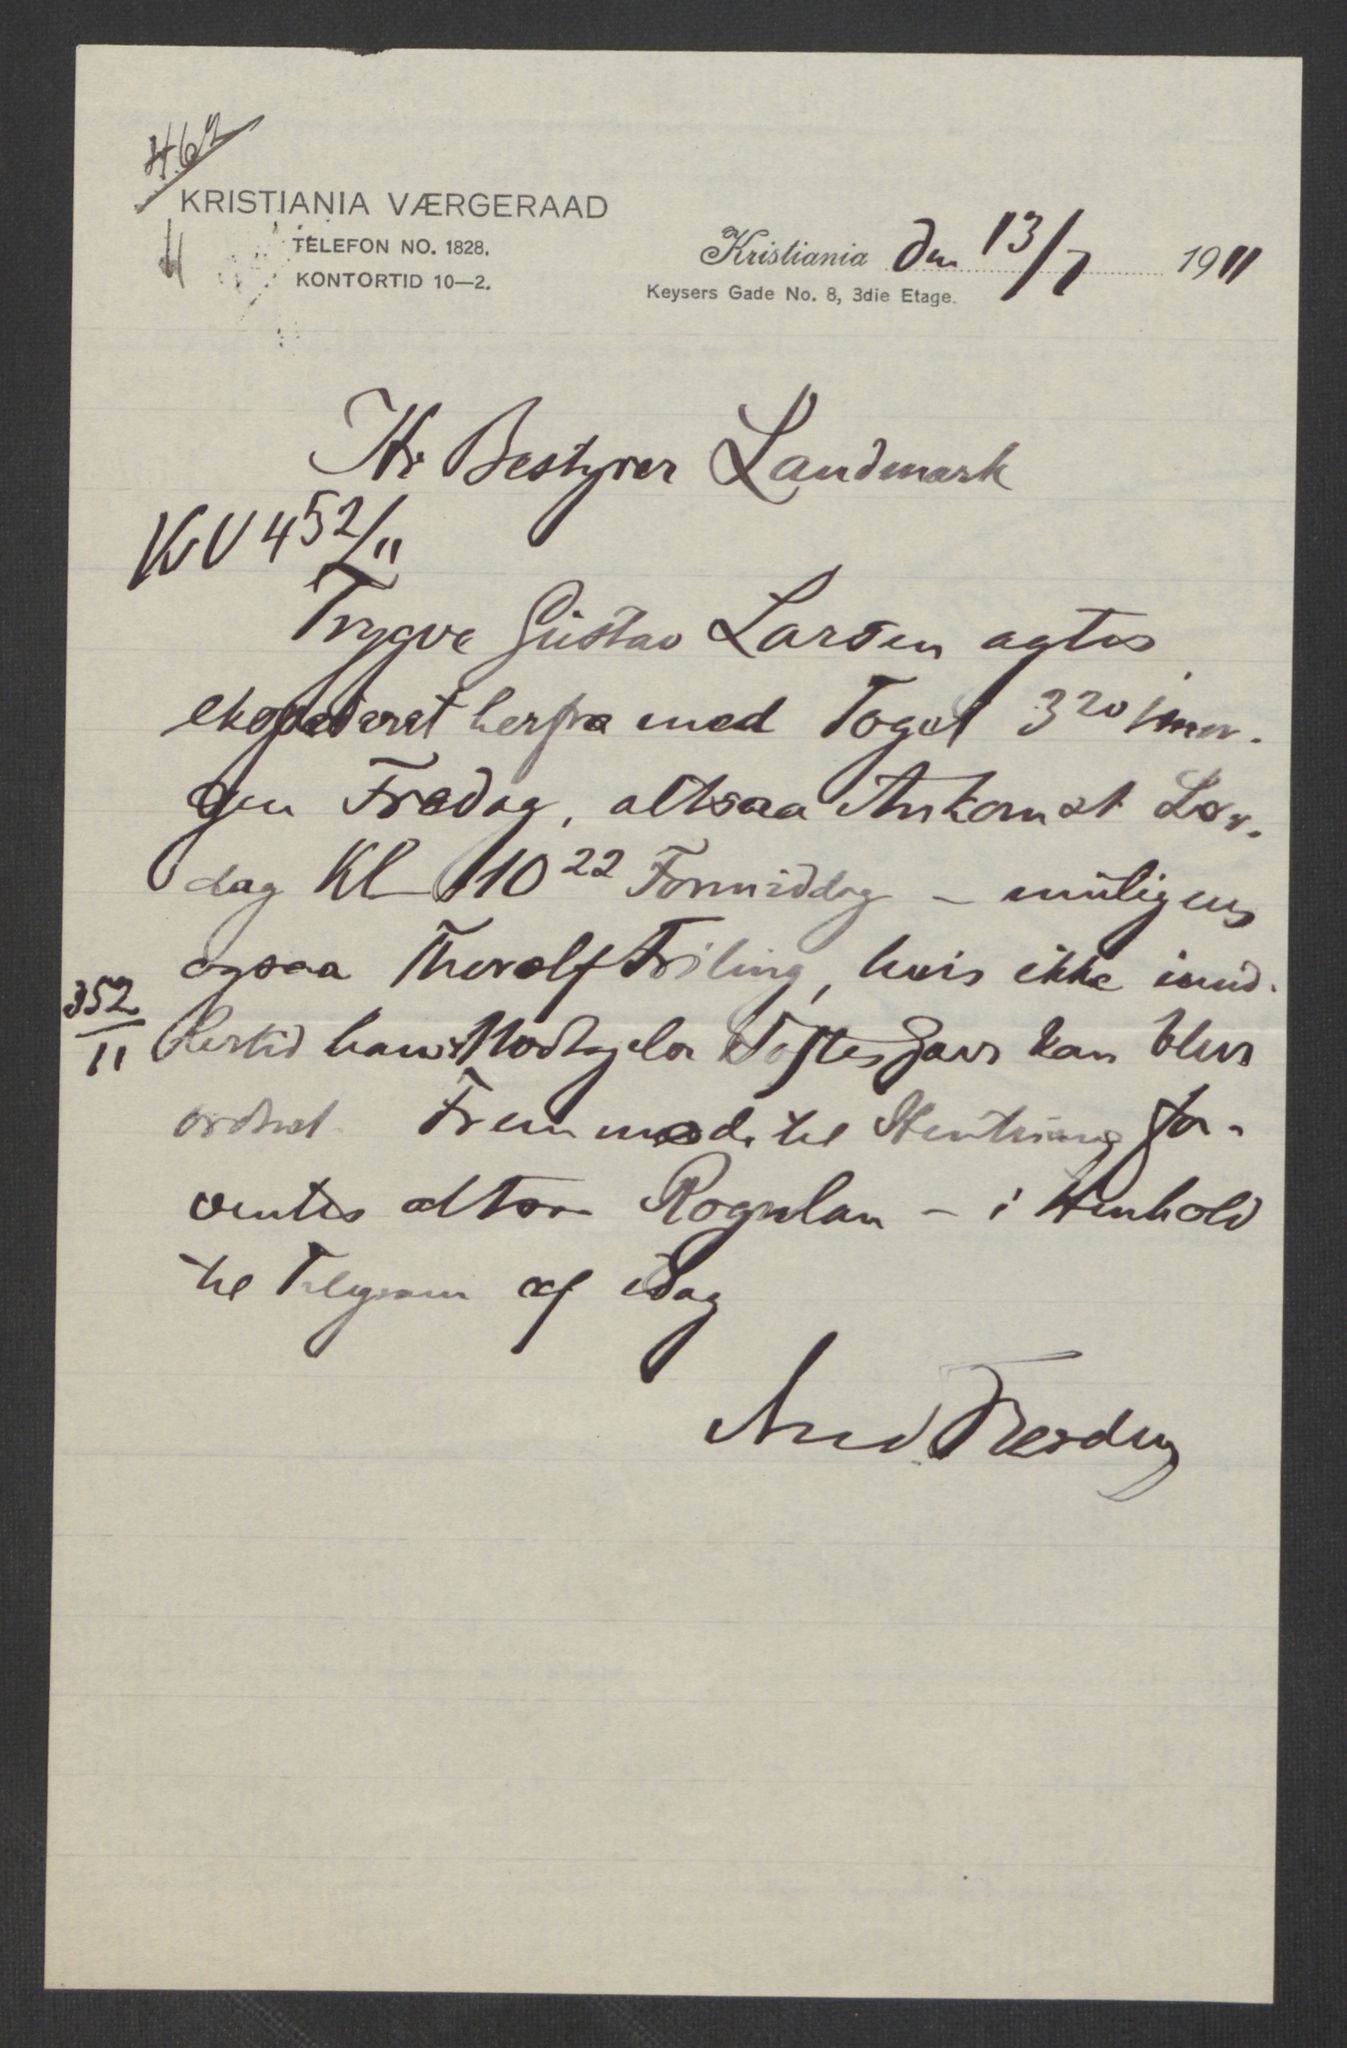 462
KRISTIANIA VÆRGERAAD
TELEFON NO. 1828.
KONTORTID 10—2.
Kristiania den 13/7 1911
Keysers Gade No. 8, 3die Etage.
Hr Bestyrer Landmark
KV 452/11
Trygve Gustav Larsen agtes
ekspederet herfra med Toget 3 20 imor-
gen Fredag, altsaa Ankomst Lør-
dag Kl 10 22 Formiddag – muligens
ogsaa Thorolf Friling, hvis ikke imid-
352/11
lertid hans Modtagelse Toftes Gave kan blive
ordnet. Fremmøde til Hentning for-
ventes altsaa Rognlan – i Henhold
til Telegram af idag